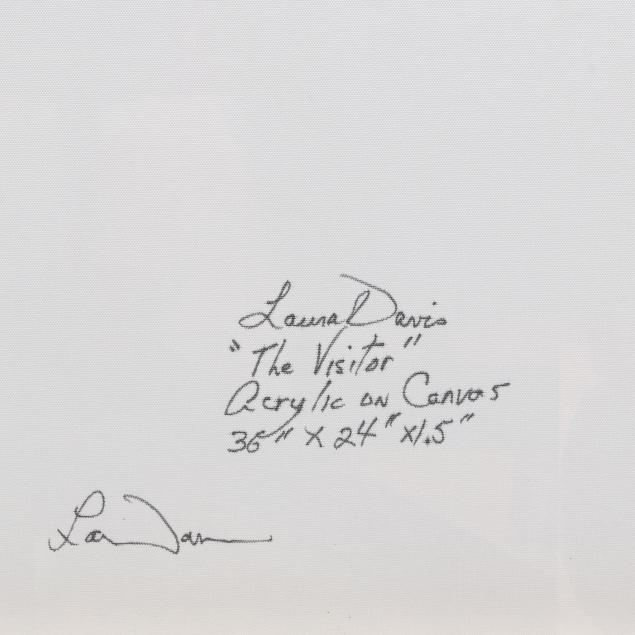 Laura Davis
"The Visitor"
Acrylic on Canvas
36" X 24" x1.5"